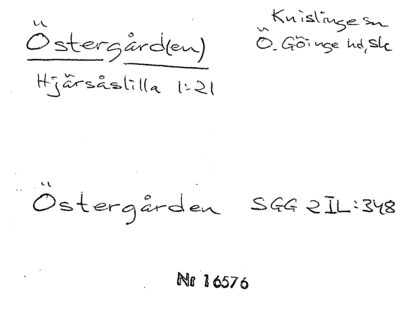 Östergård(en)
Knislinge sn
Ö. Göinge hd, Sk
Hjärsåslilla 1:21
Östergården SGG 2 IL:348
Nr 16576